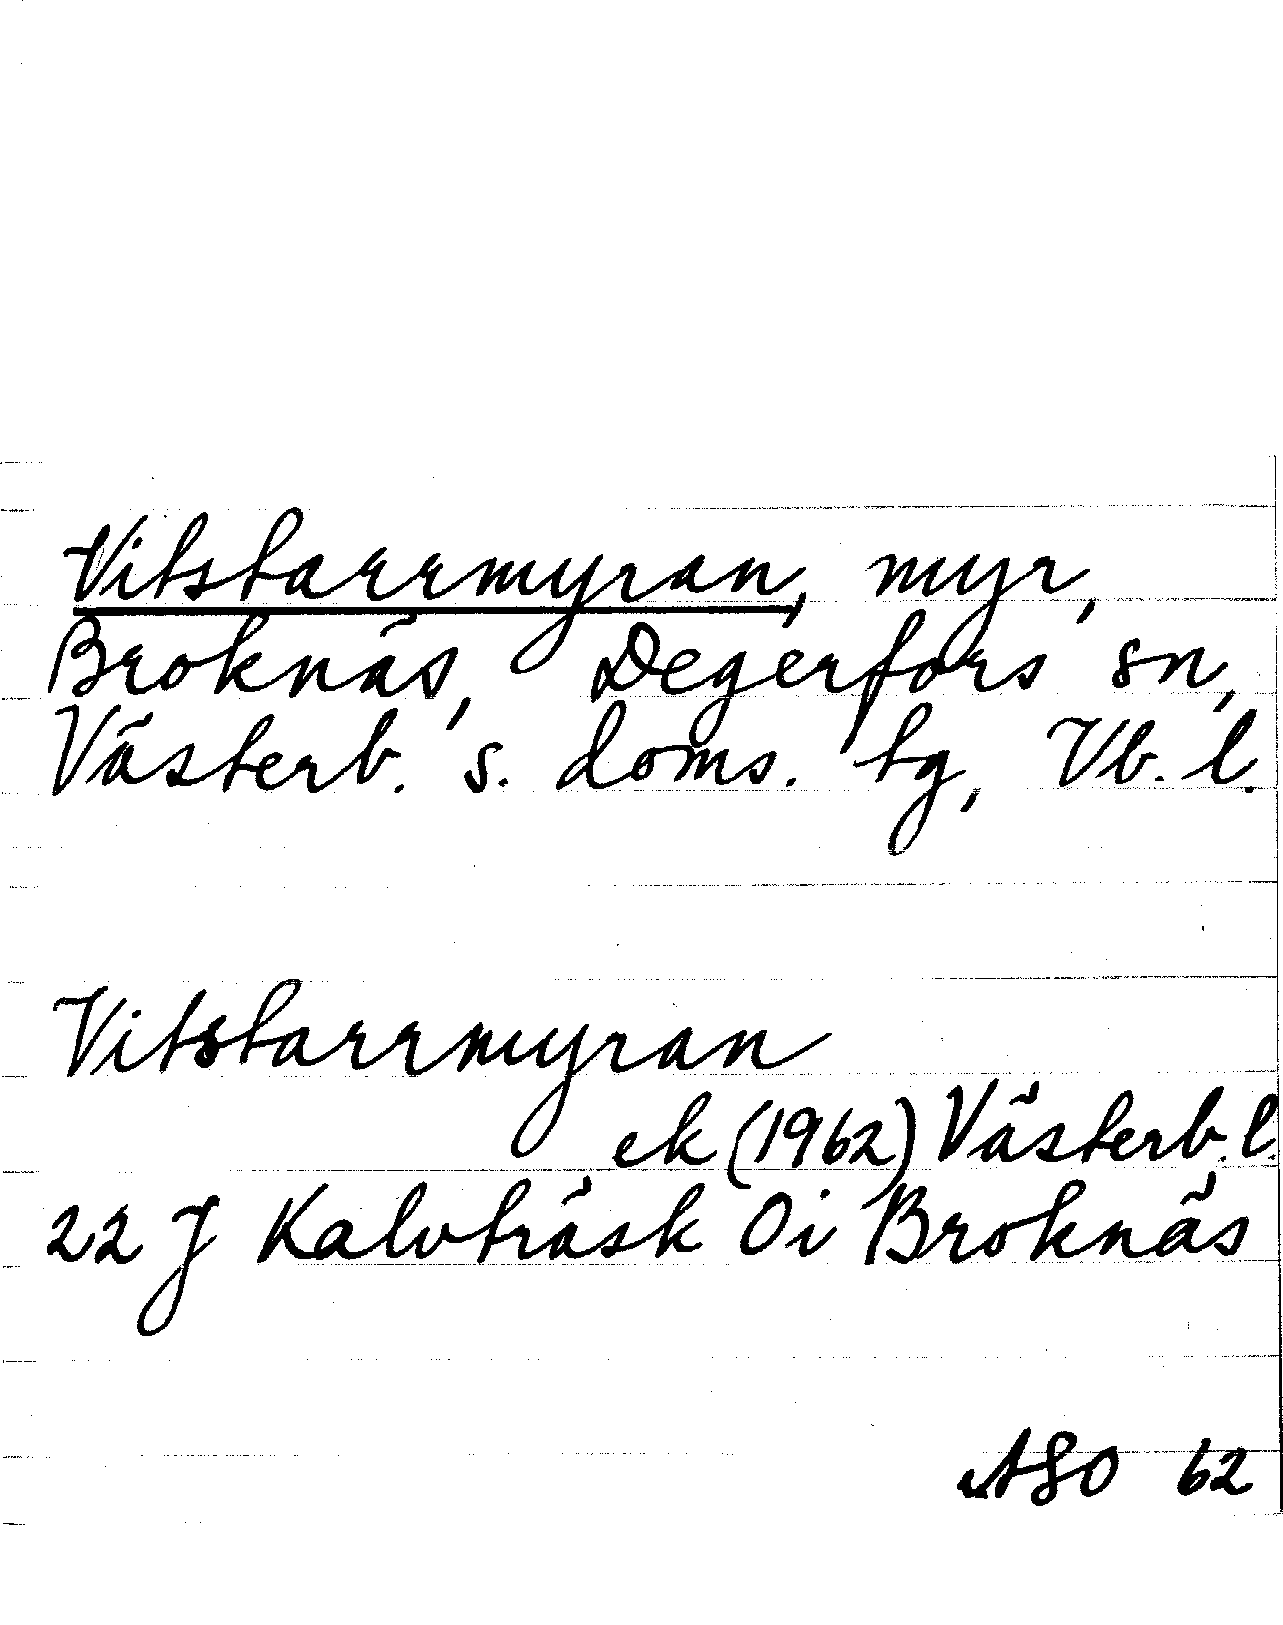 Vitstarrmyran, myr,
Broknäs, Degerfors sn,
Västerb. s. doms. tg, Vb. l.
Vitstarrmyran
ek (1962) Västerb. l.
22 J Kalvträsk 0i Broknäs
ASO 62